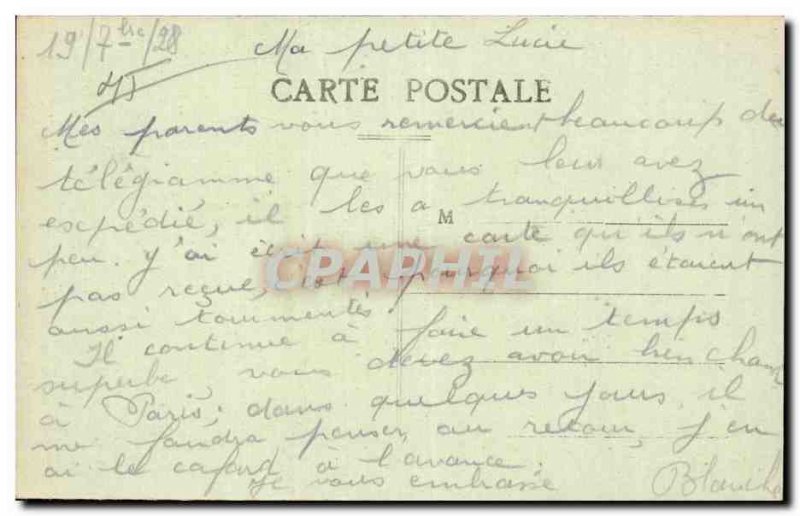 19/7bre/28 Ma petite Lucie
CARTE POSTALE
Mes parents vous remercient beaucoup du
télégramme que vous leur avez
expédié, il les a tranquillisés un
M
peu. J'ai écrit une carte qu'ils n'ont
CPAPHIL
pas reçue, c'est pourquoi ils étaient
aussi tourmentés.
Il continue à faire un temps
superbe, vous devez avoir bien chaud
à Paris; dans quelques jours, il
me faudra penser au retour, j'en
ai le cafard à l'avance.
Je vous embrasse Blanche